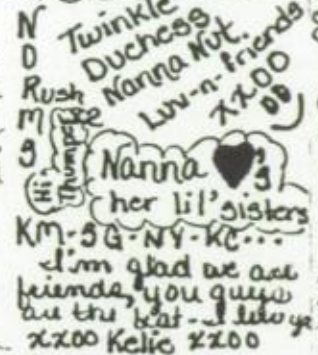 N
D
Rush
M x2
g
Twinkle
Duchess
Nanna Nut.
Luv-n-friends
xxOO
DD
Hi,
Thumps
Nanna ♥'s
her lil' sisters
KM-SG-NY-KC...
I'm glad we are
friends, you guys
are the best - I luv ya
xxoo Kelie xxoo